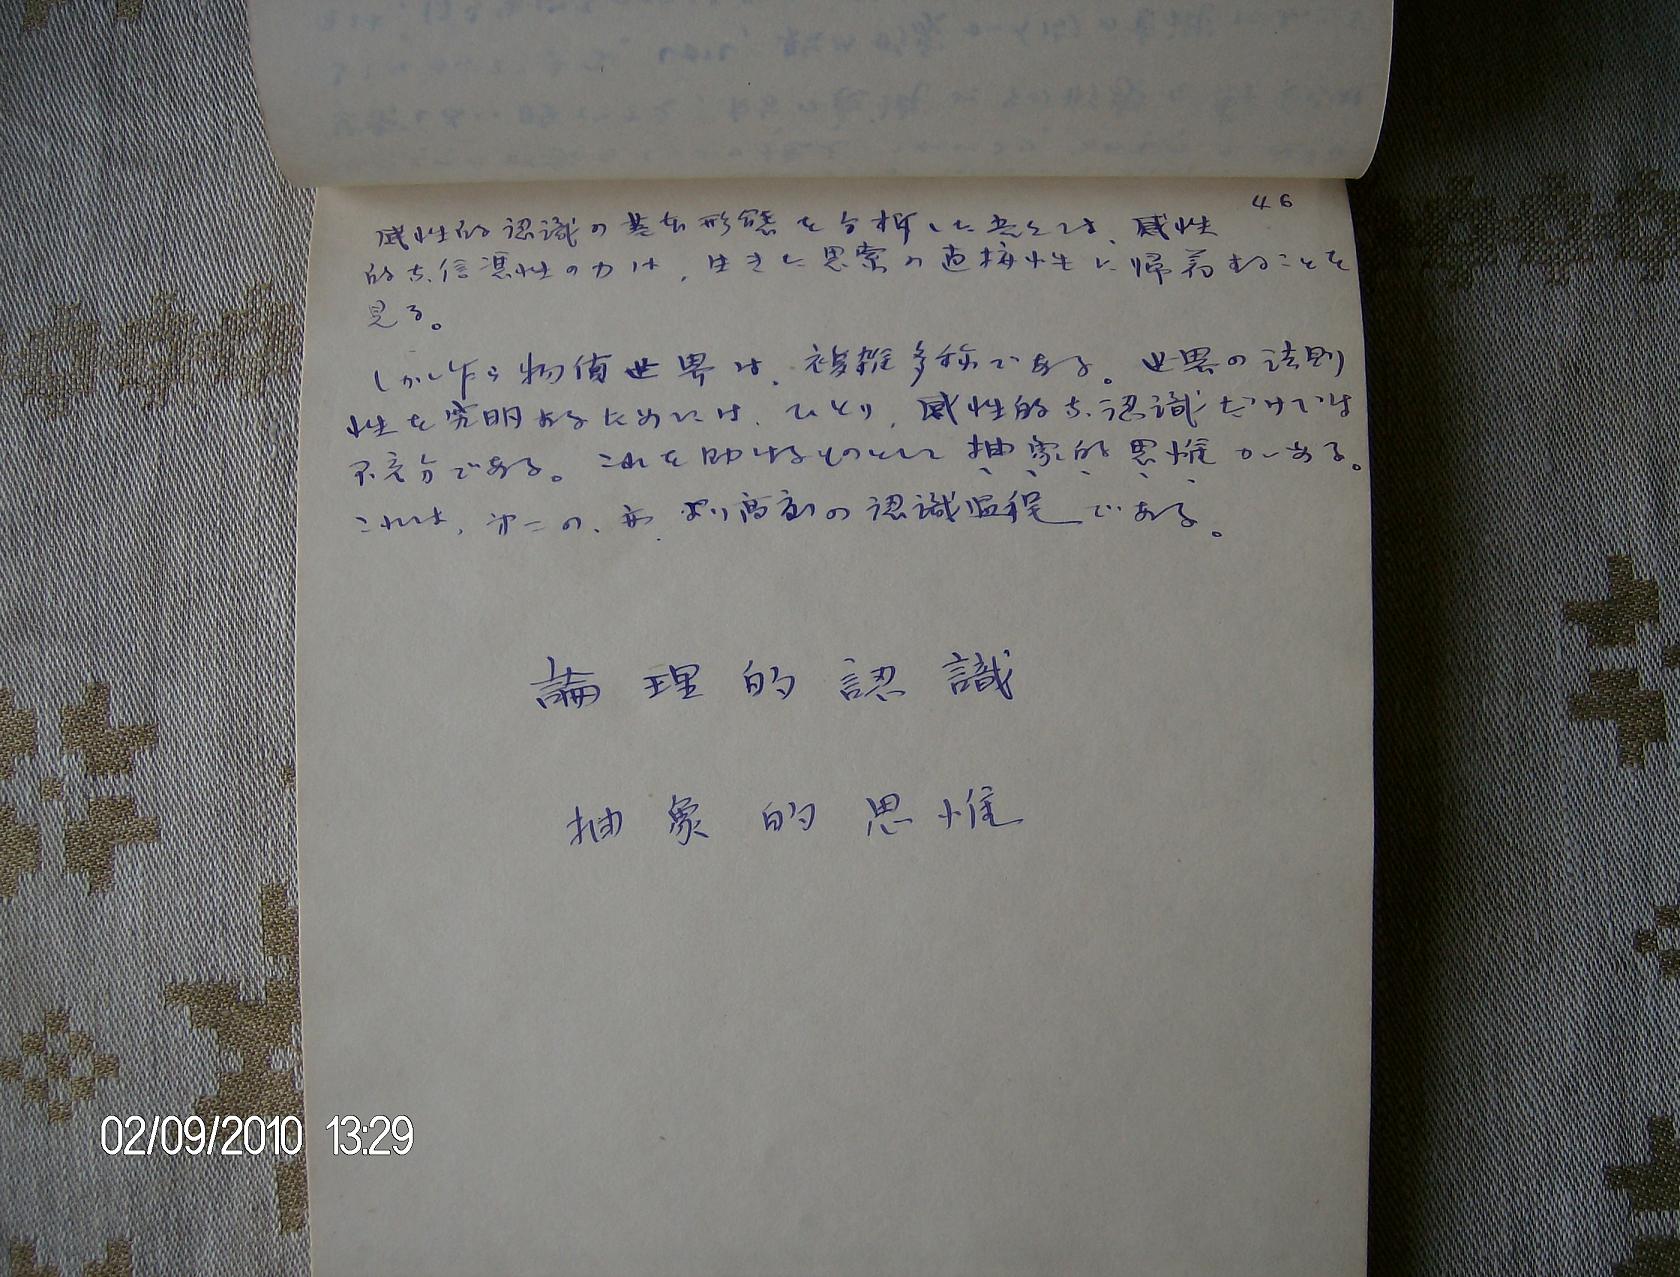 46
感性的認識の基本形態を分析した点では、感性
的な信憑性の力は、生きた思索の直接性に帰着することを
見る。
しかし乍ら物質世界は、複雑多様である。世界の法則
性を究明するためには、ひとり、感性的な認識だけでは
不充分である。これを助けるものとして抽象的思惟がある。
これは、第二の、より高度の認識過程である。
論理的認識
抽象的思惟
02/09/2010 13:29